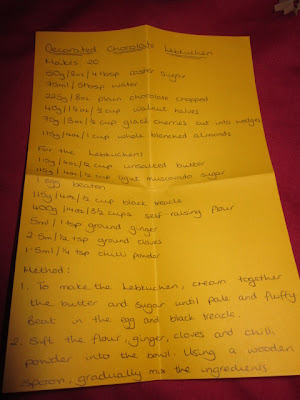 Decorated Chocolate Lebkuchen
Makes 20
50g/2oz/4tbsp caster sugar
75ml/5tbsp water
225g/8oz plain chocolate chopped
40g/1½oz/½ cup walnut halves
75g/3oz/⅓ cup glacé cherries cut into wedges
115g/4oz/1 cup whole blanched almonds
For the Lebkuchen:
115g/4oz/½ cup unsalted butter
115g/4oz/½ cup light muscovado sugar
1 egg beaten
115g/4oz/⅓ cup black treacle
400g/14oz/3½ cups self-raising flour
5ml/1tsp ground ginger
2.5ml/½tsp ground cloves
1.5ml/¼tsp chilli powder
Method:
1. To make the lebkuchen, cream together
the butter and sugar until pale and fluffy
Beat in the egg and black treacle.
2. Sift the flour, ginger, cloves and chilli
powder into the bowl. Using a wooden
spoon, gradually mix the ingredients